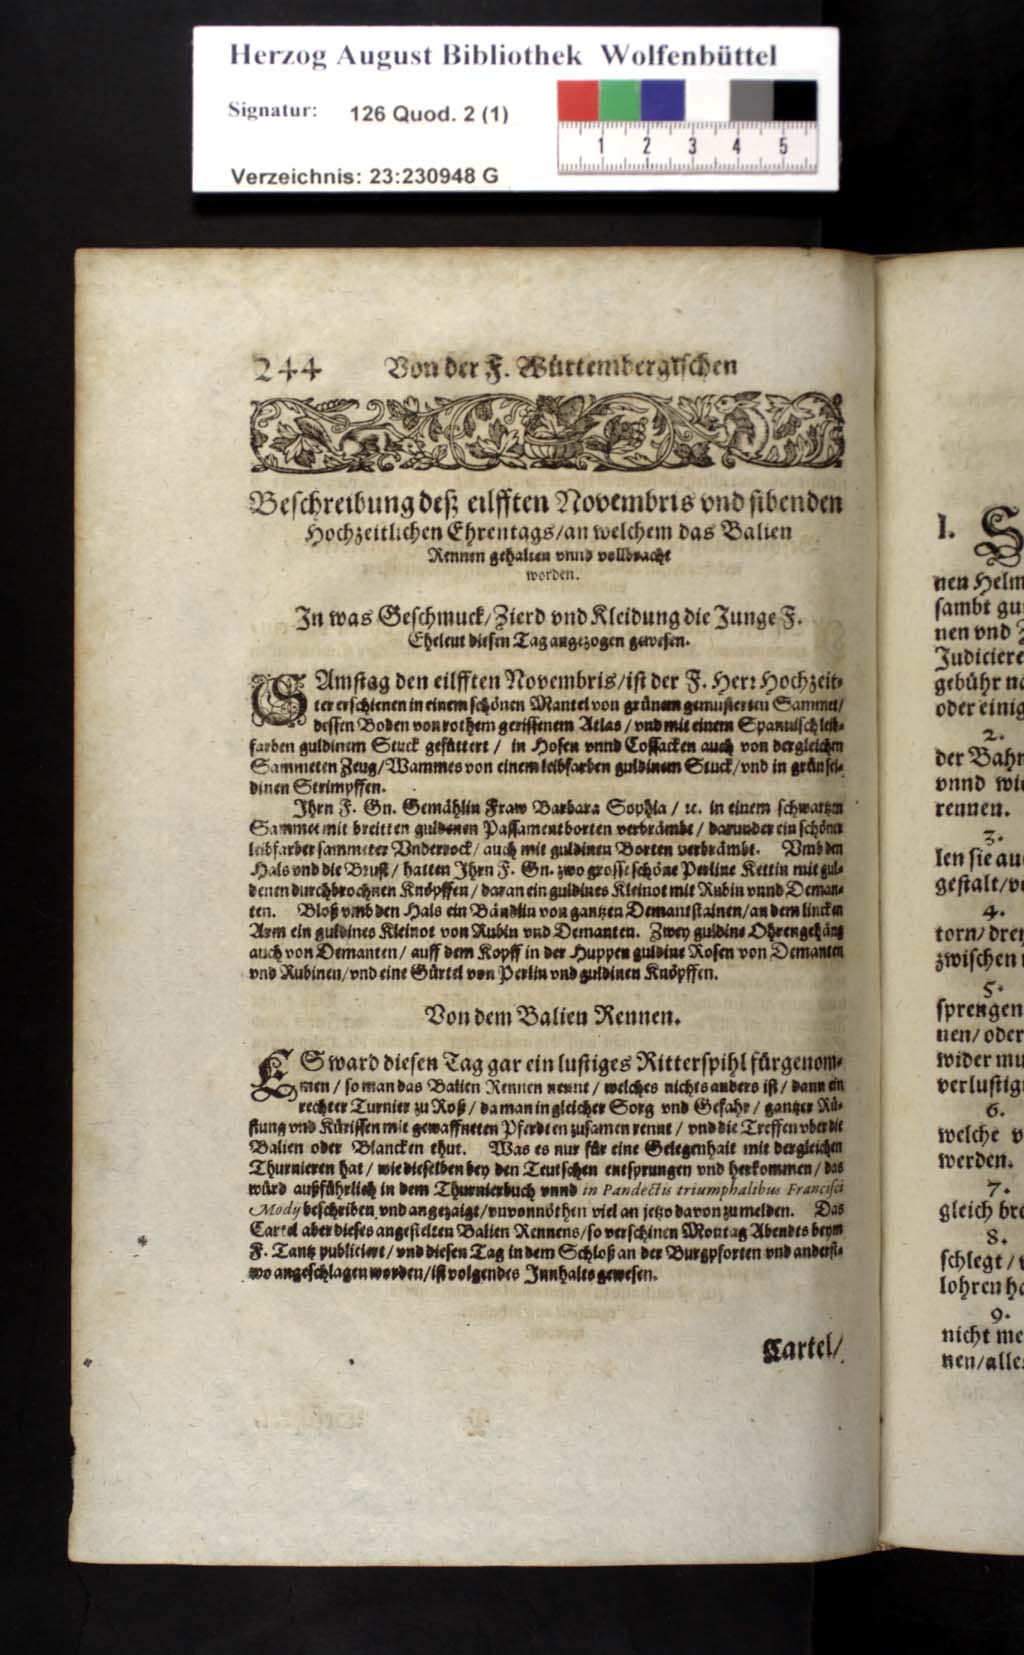 Herzog August Bibliothek Wolfenbüttel
Signatur: 126 Quod. 2 (1)
1 2 3 4 5
Verzeichnis: 23:230948 G
244 Von der F. Würtembergischen
Beschreibung deß eilfften Novembris vnd sibenden
Hochzeitlichen Ehrentags/an welchem das Balien
Rennen gehalten vnnd vollbracht
worden.
In was Geschmuck/Zierd vnd Kleidung die Junge F.
Eheleut diesen Tag angezogen gewesen.
SAmstag den eilfften Novembris/ist der F. Herr Hochzeit-
ter erschienen in einem schönen Mantel von grünem gemusierten Sammet/
dessen Boden von rothem gerissenem Atlas / vnd mit einem Spanuisch leib-
farben guldinem Stuck gefüttert / in Hosen vnnd Cossacken auch von dergleichen
Sammeten Zeug/Wammes von einem leibfarben guldinem Stuck/vnd in grün sei-
dinen Strimpffen.
Ihrn F. Gn. Gemählin Fraw Barbara Sophia / ꝛc. in einem schwartzen
Sammet mit breitten guldenen Passamentborten verbrämbt / darunder ein schöner
leibfarber sammeter Vnderrock/ auch mit guldinen Borten verbrämbt. Vmb den
Hals vnd die Brust / hatten Ihrn F. Gn. zwo grosse schöne Perline Kettin mit gul-
denen durchbrochnen Knöpffen / daran ein guldines Kleinot mit Rubin vnnd Deman-
ten. Bloß vmb den Hals ein Bändlin von gantzen Demantstainen/an dem lincken
Arm ein guldines Kleinot von Rubin vnd Demanten. Zwey guldine Ohrengehäng
auch von Demanten / auff dem Kopff in der Huppen guldine Rosen von Demanten
vnd Rubinen/vnd eine Gürtel von Perlin vnd guldinen Knöpffen.
Von dem Balien Rennen.
ES ward diesen Tag gar ein lustiges Ritterspihl fürgenom-
men / so man das Balien Rennen nennt / welches nichts anders ist / dann ein
rechter Turnier zu Roß / da man in gleicher Sorg vnd Gefahr / gantzer Rü-
stung vnd Kürissen mit gewaffneten Pferdten zusamen rennt / vnd die Treffen vber die
Balien oder Blancken thut. Was es nur für eine Gelegenhait mit dergleichen
Thurnieren hat / wie dieselben bey den Teutschen entsprungen vnd herkommen / das
würd außführlich in dem Thurnierbuch vnnd in Pandectis triumphalibus Francisci
Modij beschriben vnd angezaigt/vnvonnöthen viel an jetzo davon zu melden. Das
Cartel aber dieses angestelten Balien Rennens/so verschinen Montag Abendts beym
F. Tantz publiciert / vnd diesen Tag in dem Schloß an der Burgpforten vnd anderst-
wo angeschlagen worden/ist volgendes Innhalts gewesen.
Cartel/
I. S
nen Helm
sambt gu
nen vnd
Judiciere
gebühr
oder einig
2.
der Bahn
vnnd
rennen.
3.
len sie
gestalt/
4.
torn/
zwischen
5.
sprengen
nen/ oder
wider
verlustig
6.
welche
werden.
7.
gleich
8.
schlegt /
lohren
9.
nicht
nen/alle